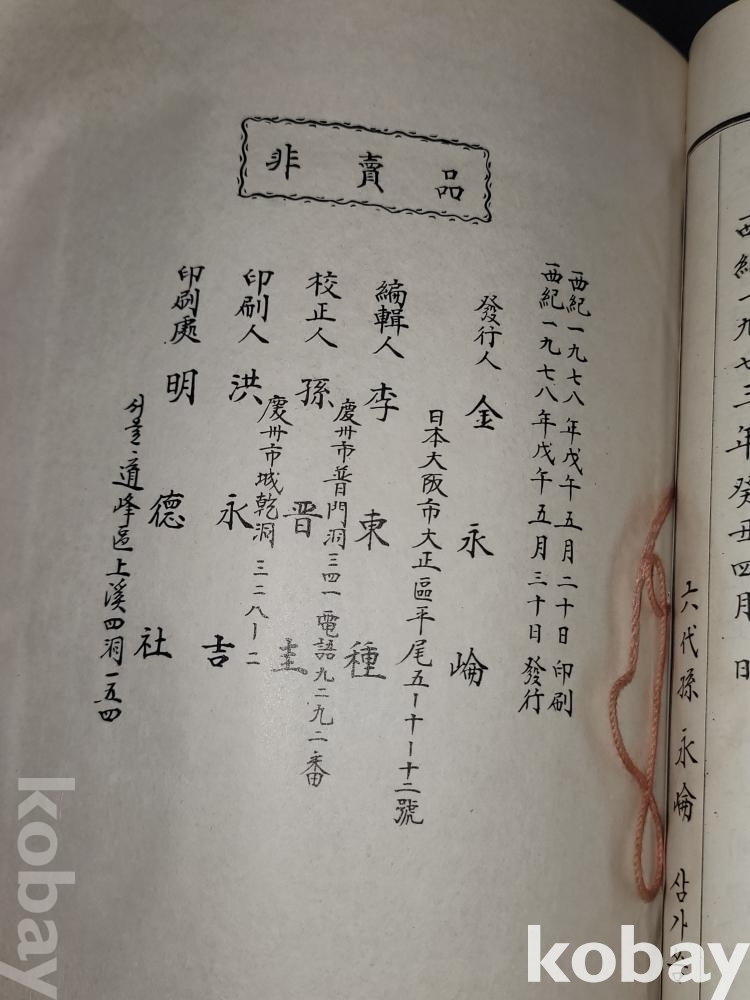 西紀一九七三年癸丑四月 日
六代孫 永崘 삼가 씀
非賣品
西紀一九七八年戊午五月二十日 印刷
西紀一九七八年戊午五月三十日 發行
發行人 金永崘
日本大阪市大正區平尾五ー十ー十二號
編輯人 李東種
慶州市普門洞三四一 電語九二九二番
校正人 孫晋圭
慶州市城乾洞 三二八ー二
印刷人 洪永吉
印刷處 明德社
서울 道峰區上溪四洞一五四